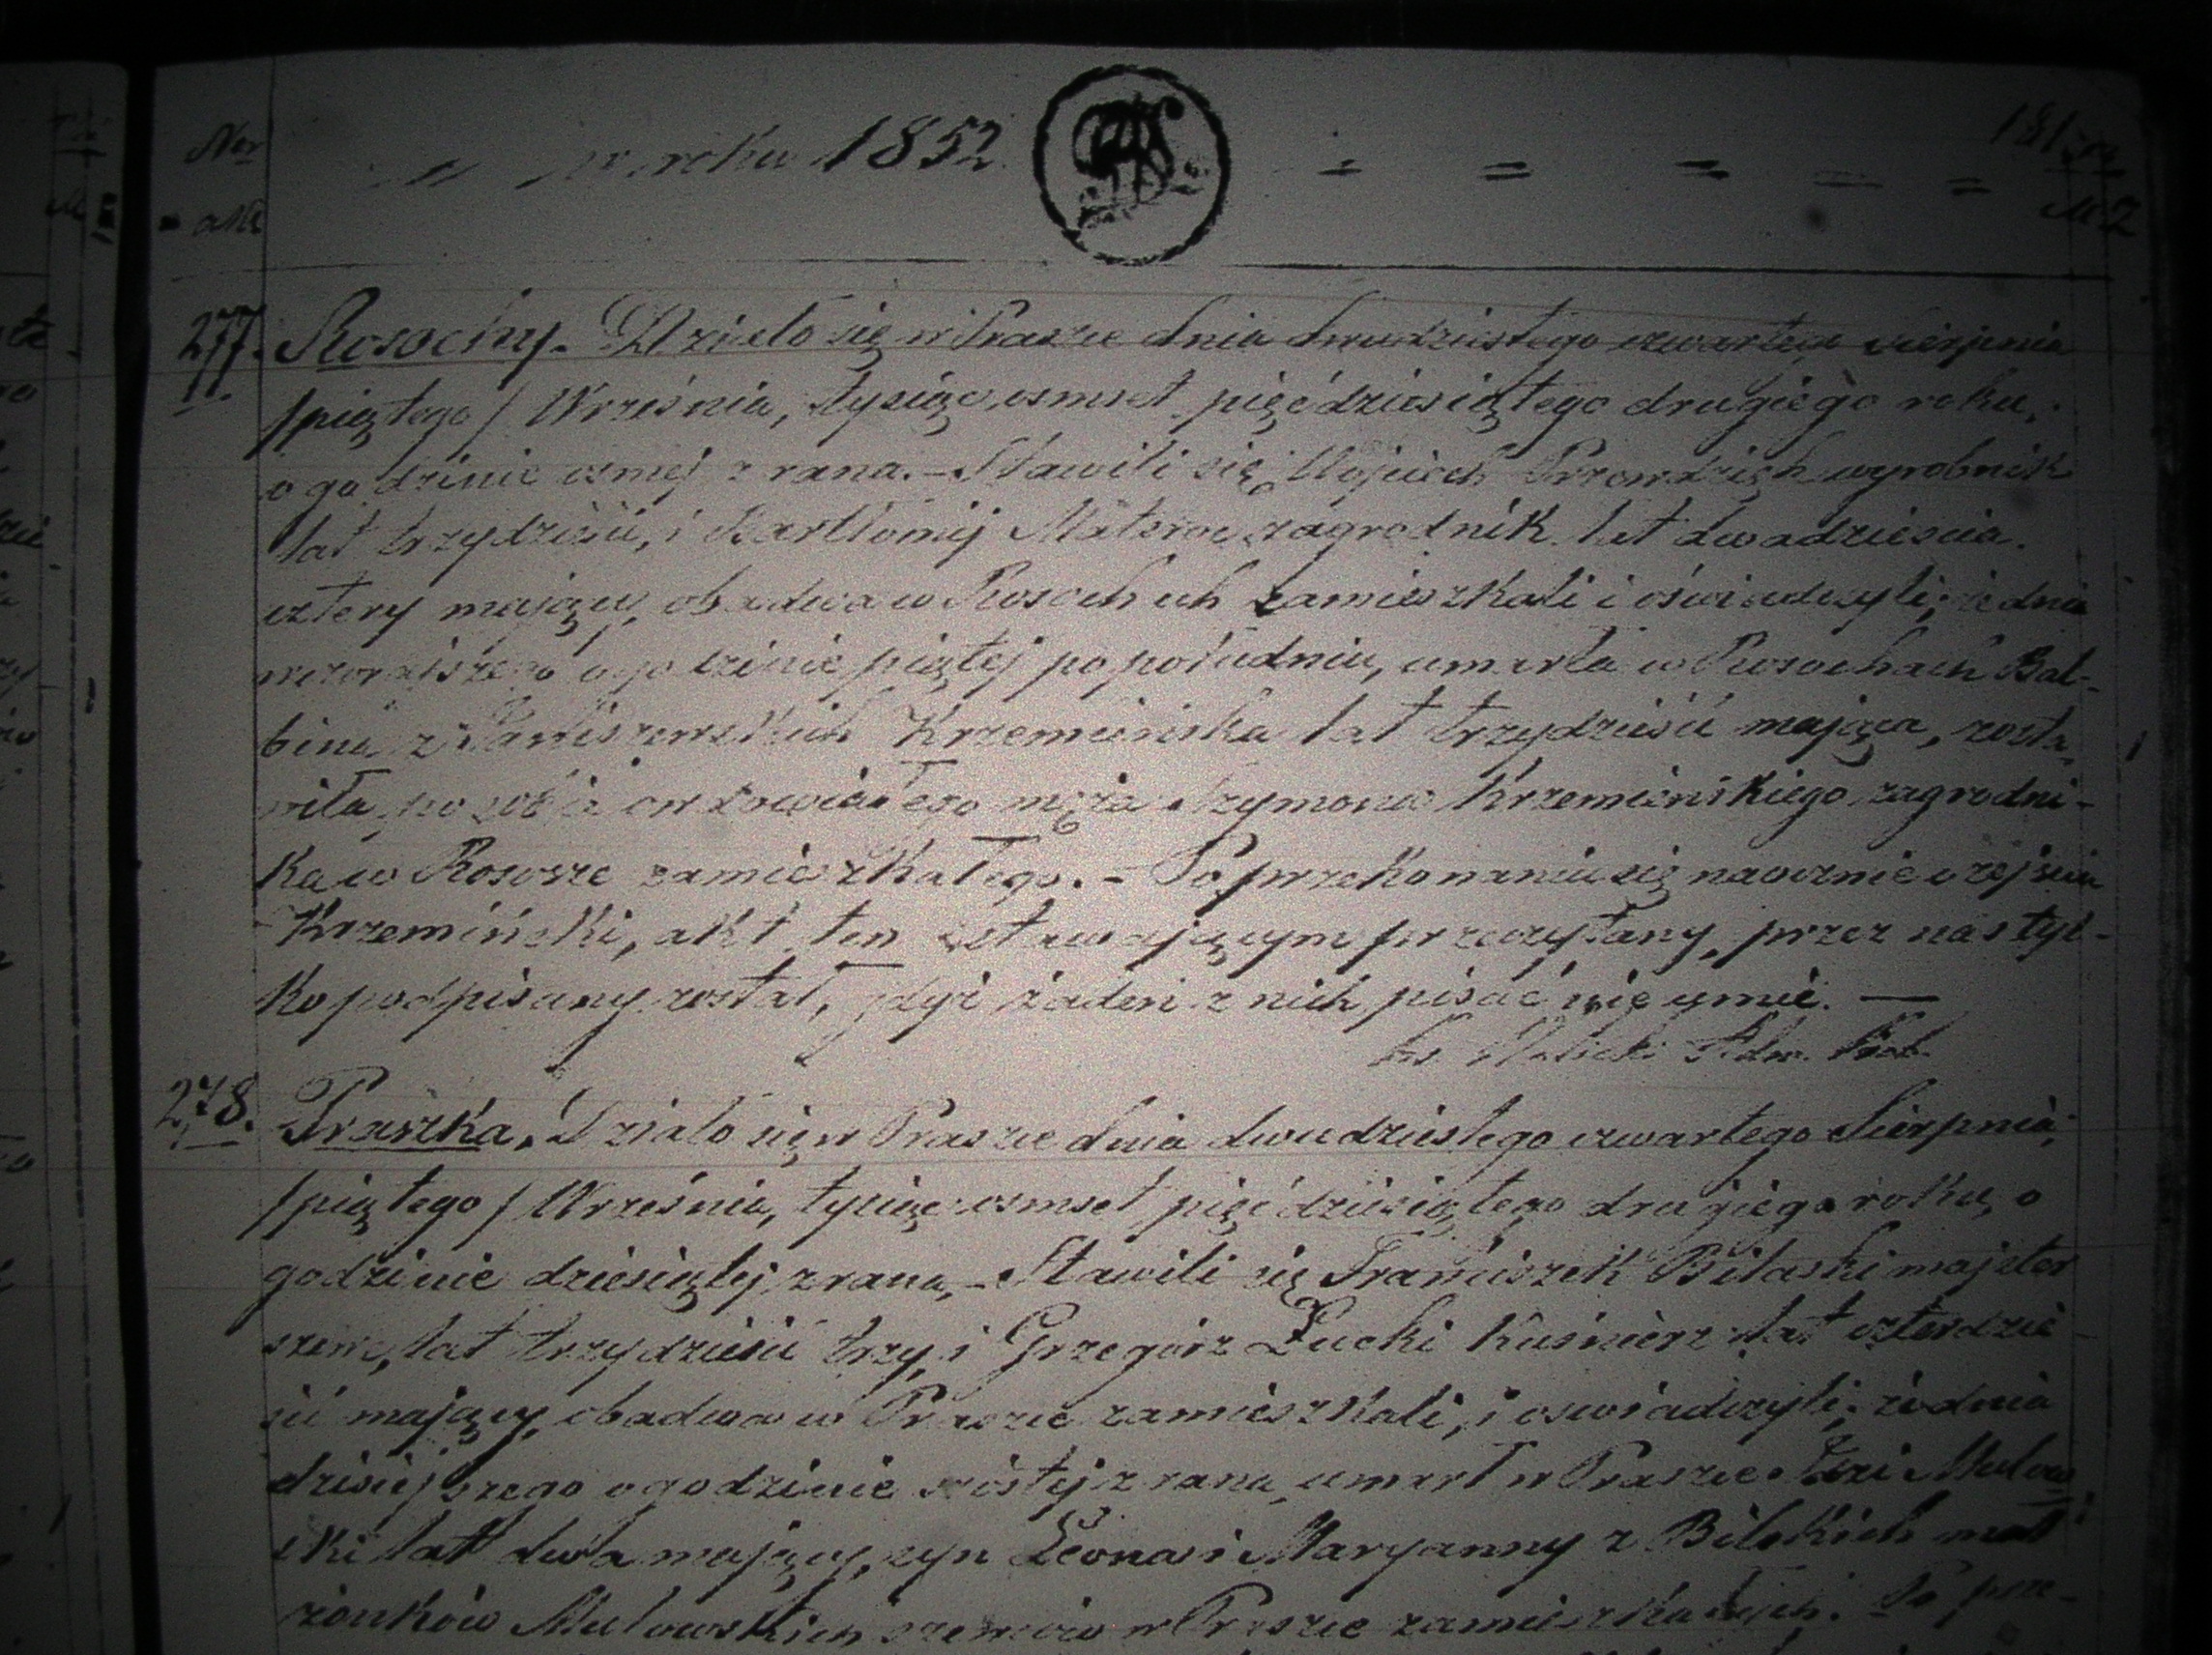 Ner
w roku 1852 = = = = =
akt
277. Rosochy. Działo się w Prasce dnia dwudziestego czwartego sierpnia
/piątego/ Września, tysiąc osmset pięćdziesiątego drugiego roku,
o godzinie osmej z rana. – Stawili się Wojciech wyrobnik
lat trzydzieści, i Bartłomij zagrodnik lat dwadzieścia
cztery mający, obadwa w Rosochach zamieszkali i oświadczyli, że dnia
wczorajszego o godzinie piątej po południu, umarła w Rosochach Bal-
bina z Krzemińska lat trzydzieści mająca, zosta
wiła po sobie owdowiałego męża Szymona Krzemińskiego zagrodni-
ka w Rososze zamieszkałego. – Po przekonaniu się naocznie o zejściu
Krzemiński, akt ten stawającym przeczytany, przez nas tyl-
ko podpisany został, gdyż żaden z nich pisać nie umie. —
278. Praszka. Działo się w Prasce dnia dwudziestego czwartego Sierpnia,
/piątego/ Września, tysiąc osmset pięćdziesiątego drugiego roku, o
godzinie dziesiątej z rana, – Stawili się Franciszek Bilaski majster
szewc, lat trzydzieści trzy, i Grzegórz Łucki Kuśnierz lat czterdzie
ści mający, obadwa w Prasce zamieszkali, i oswiadczyli; że dnia
dzisiejszego o godzinie szóstej z rana, umarł w Prasce Mulow
ski lat dwa mający, syn Leona i Maryanny z Bilskich mał
żonków Mulowskich szewców w Prasce zamieszkałych. Po prze-